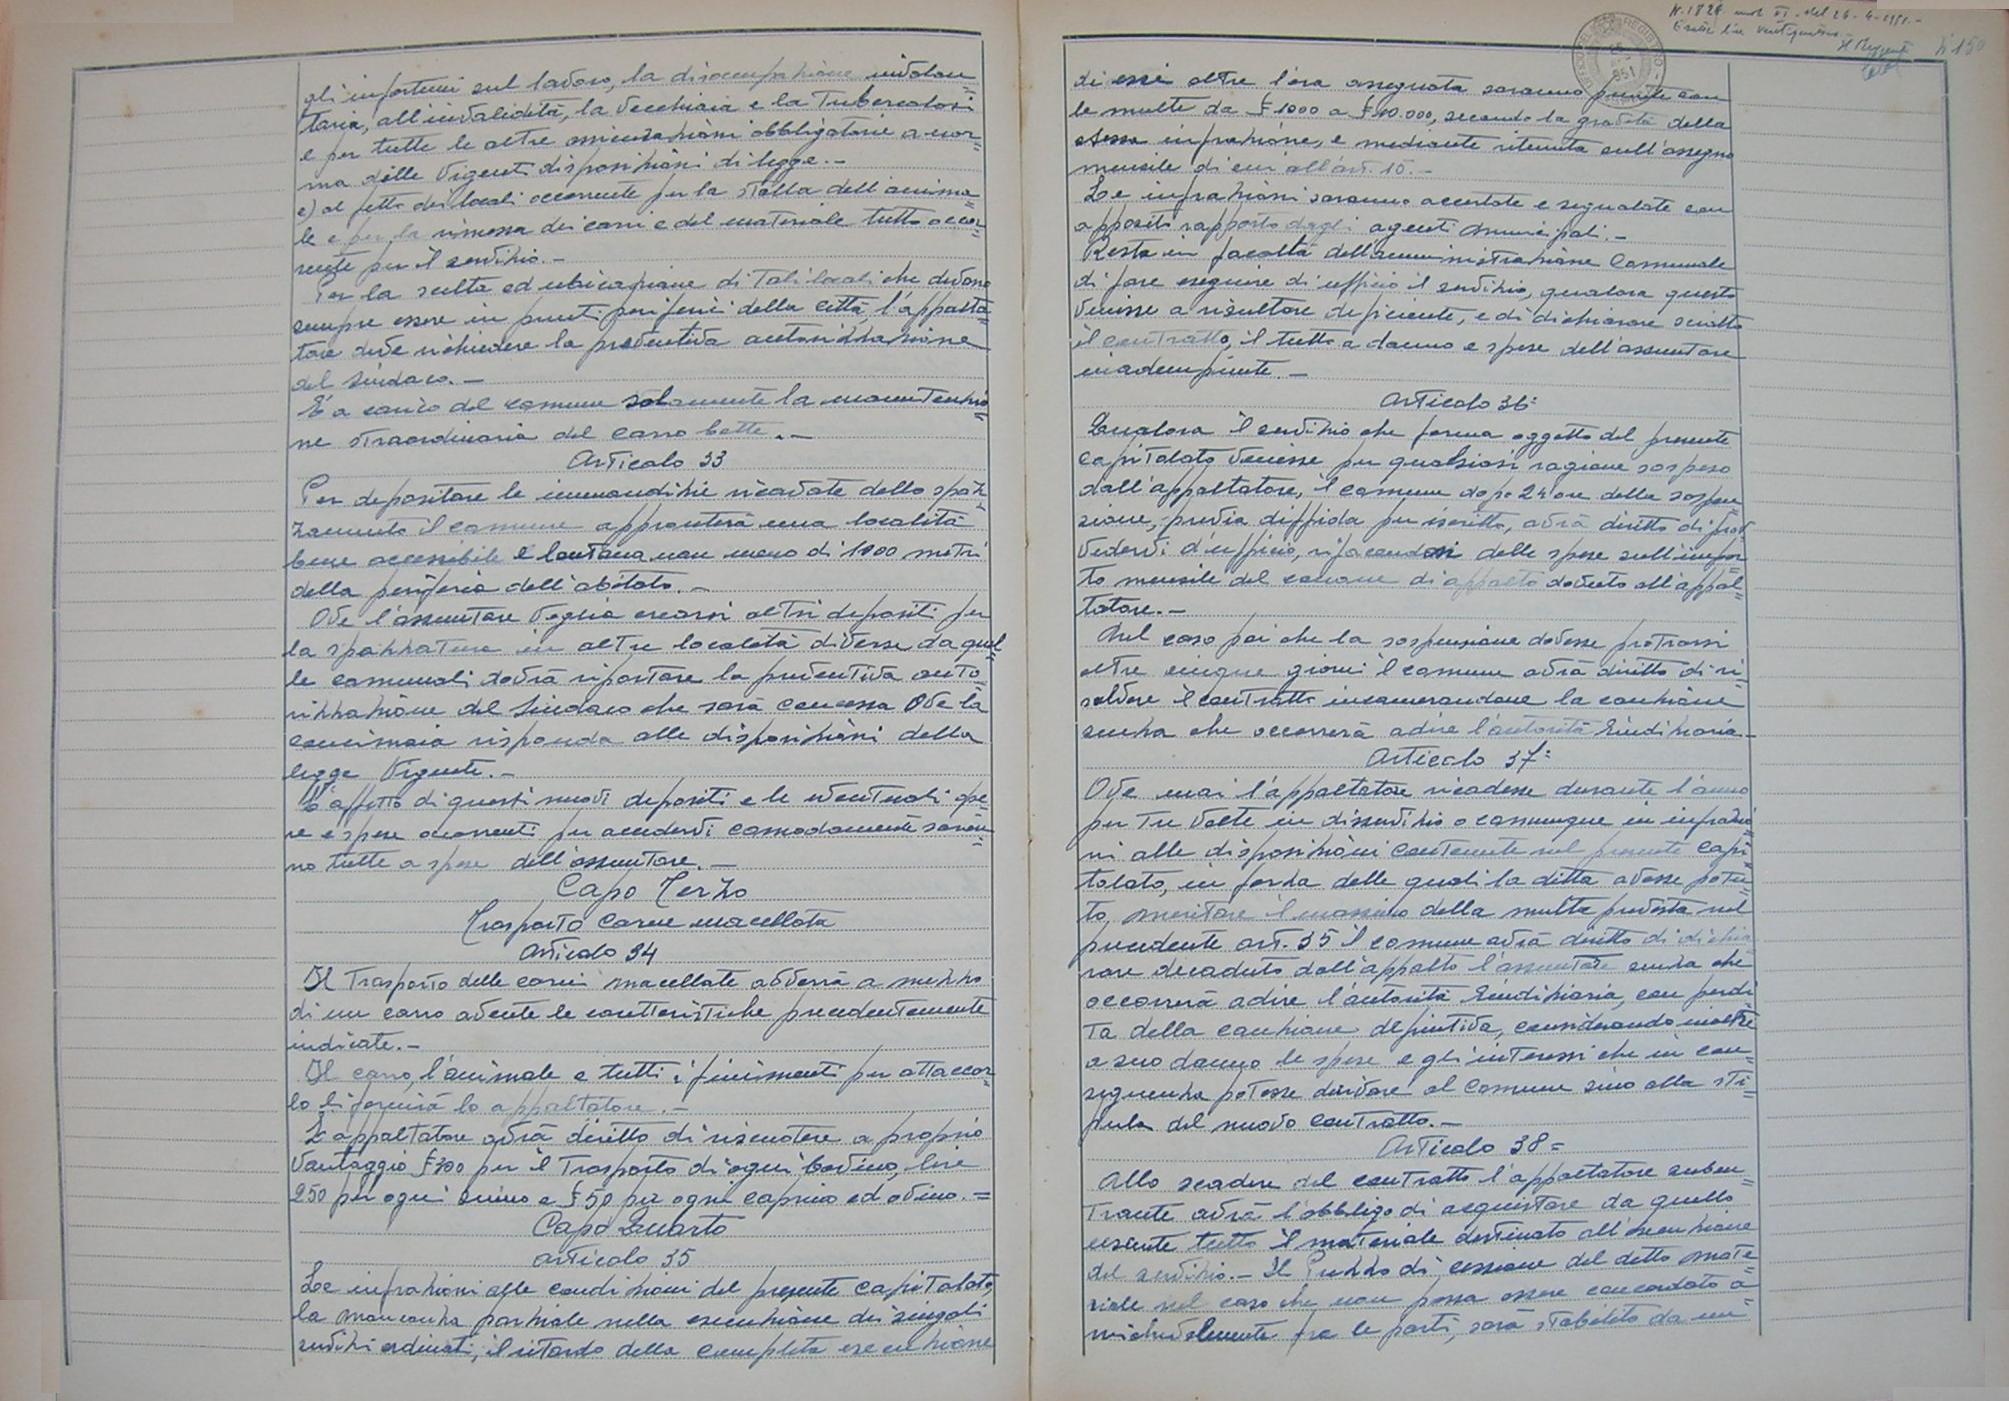 gli infortuni sul lavoro, la disoccupazione involon=
taria, all'invalidità, la vecchiaia e la Tubercolosi
e per tutte le altre assicurazioni obbligatorie a nor=
ma delle vigenti disposizioni di legge.-
e) al fitto dei locali occorrente per la stalla dell'anima=
le e per la rimessa dei carri e del materiale tutto occor=
rente per il servizio.-
Per la scelta ed ubicazione di tali locali che devono
sempre essere in punti periferici della città l'appalta=
tore deve richiedere la preventiva autorizzazione
del Sindaco.-
E' a carico del comune solamente la manutenzio=
ne straordinaria del carro botte.-
Articolo 33
Per depositare le immondizie ricavate dello spaz=
zamento il comune appronterà una località
bene accessibile e lontana non meno di 1000 metri
della periferia dell'abitato.-
Ove l'assuntore voglia crearsi altri depositi per
la spazzatura in altre località diverse da quel=
le comunali dovrà riportare la preventiva auto=
rizzazione del Sindaco che sarà concessa ove la
concimaia risponda alle disposizioni della
legge vigente.-
L'affitto di questi nuovi depositi e le eventuali ope=
re e spese occorrenti per accedervi comodamente saran=
no tutte a spese dell'assuntore.-
Capo Terzo
Trasporto carne macellata
Articolo 34
Il Trasporto delle carni macellate avverrà a mezzo
di un carro avente le caratteristiche precedentemente
indicate.-
Il carro, l'animale e tutti i finimenti per attaccar=
lo li fornirà lo appaltatore.-
L'appaltatore avrà diretto di riscuotere a proprio
vantaggio £300 per il Trasporto di ogni bovino, lire
250 per ogni suino e £50 per ogni caprino ed ovino.=
Capo Quarto
articolo 35
Le infrazioni alle condizioni del presente capitolato,
la mancanza parziale nella esecuzione dei singoli
servizi ordinati, il ritardo della completa esecuzione
N. 1829 mod VI. del 26-4-1951.-
N 150
di essi oltre l'ora assegnata saranno punite con
le multe da £1000 a £10.000, secondo la gravità della
stessa infrazione, e mediante ritenuta sull'assegno
mensile di cui all'art. 10.-
Le infrazioni saranno accertate e segnalate con
appositi rapporto dagli agenti Municipali.-
Resta in facoltà dell'amministrazione Comunale
di fare eseguire di ufficio il servizio, qualora questo
venisse a risultare deficiente, e di dichiarare sciolto
il contratto, il tutto a danno e spese dell'assuntore
inadempiente.-
Articolo 36=
Qualora il servizio che forma oggetto del presente
capitolato venisse per qualsiasi ragione sospeso
dall'appaltatore, il comune dopo 24 ore della sospen=
sione, previa diffida per iscritto, avrà diretto di prov=
vedervi d'ufficio, rifacendosi delle spese sull'impor=
to mensile del canone di appalto dovuto all'appal=
tatore.-
Nel caso poi che la sospensione dovesse protrarsi
oltre cinque giorni il comune avrà diretto di ri=
solvere il contratto incamerandone la cauzione
senza che occorrerà adire l'autorità Giudiziaria.-
Articolo 37=
Ove mai l'appaltatore ricadesse durante l'anno
per tre volte in disservizio o comunque in infrazio=
ni alle disposizioni contenute nel presente capi=
tolato, in forza delle quali la ditta avesse potu=
to, meritare il massimo della multa prevista nel
precedente art. 35 il comune avrà diretto di dichia=
rare decaduto dall'appalto l'assuntore senza che
occorrerà adire l'autorità Giudiziaria, con perdi=
ta della cauzione definitiva, considerando inoltre
a suo danno le spese e gli interessi che in con=
seguenza potesse derivare al Comune sino alla sti=
pula del nuovo contratto.-
Articolo 38=
Allo scadere del contratto l'appaltatore suben=
trante avrà l'obbligo di acquistare da quello
uscente tutto il materiale destinato all'esecuzione
del servizio.- Il Prezzo di cessione del detto mate=
riale nel caso che non possa essere concordato a=
michevolmente fra le parti, sarà stabilito da un=